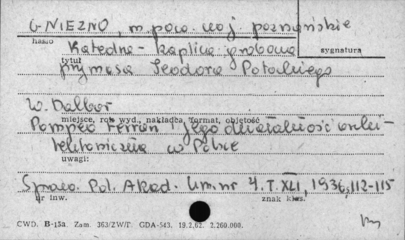 GNIEZNO, m. pow. woj. poznańskie
hasło
Katedra - kaplica grobowa
sygnatura
tytuł
prymasa Teodora Potockiego
W. Dalbor
miejsce, rok wyd., nakładca, format, objętość
Pompeo Ferrari i jego działalność archi-
tektoniczna w Polsce
uwagi:
Spraw. Pol. Akad. Um. nr 4. T. XLI, 1936, 112-115
nr inw.
znak klas.
CWD. B-15a. Zam. 363/ZW/T. GDA-543. 19.2.62. 2.260.000.